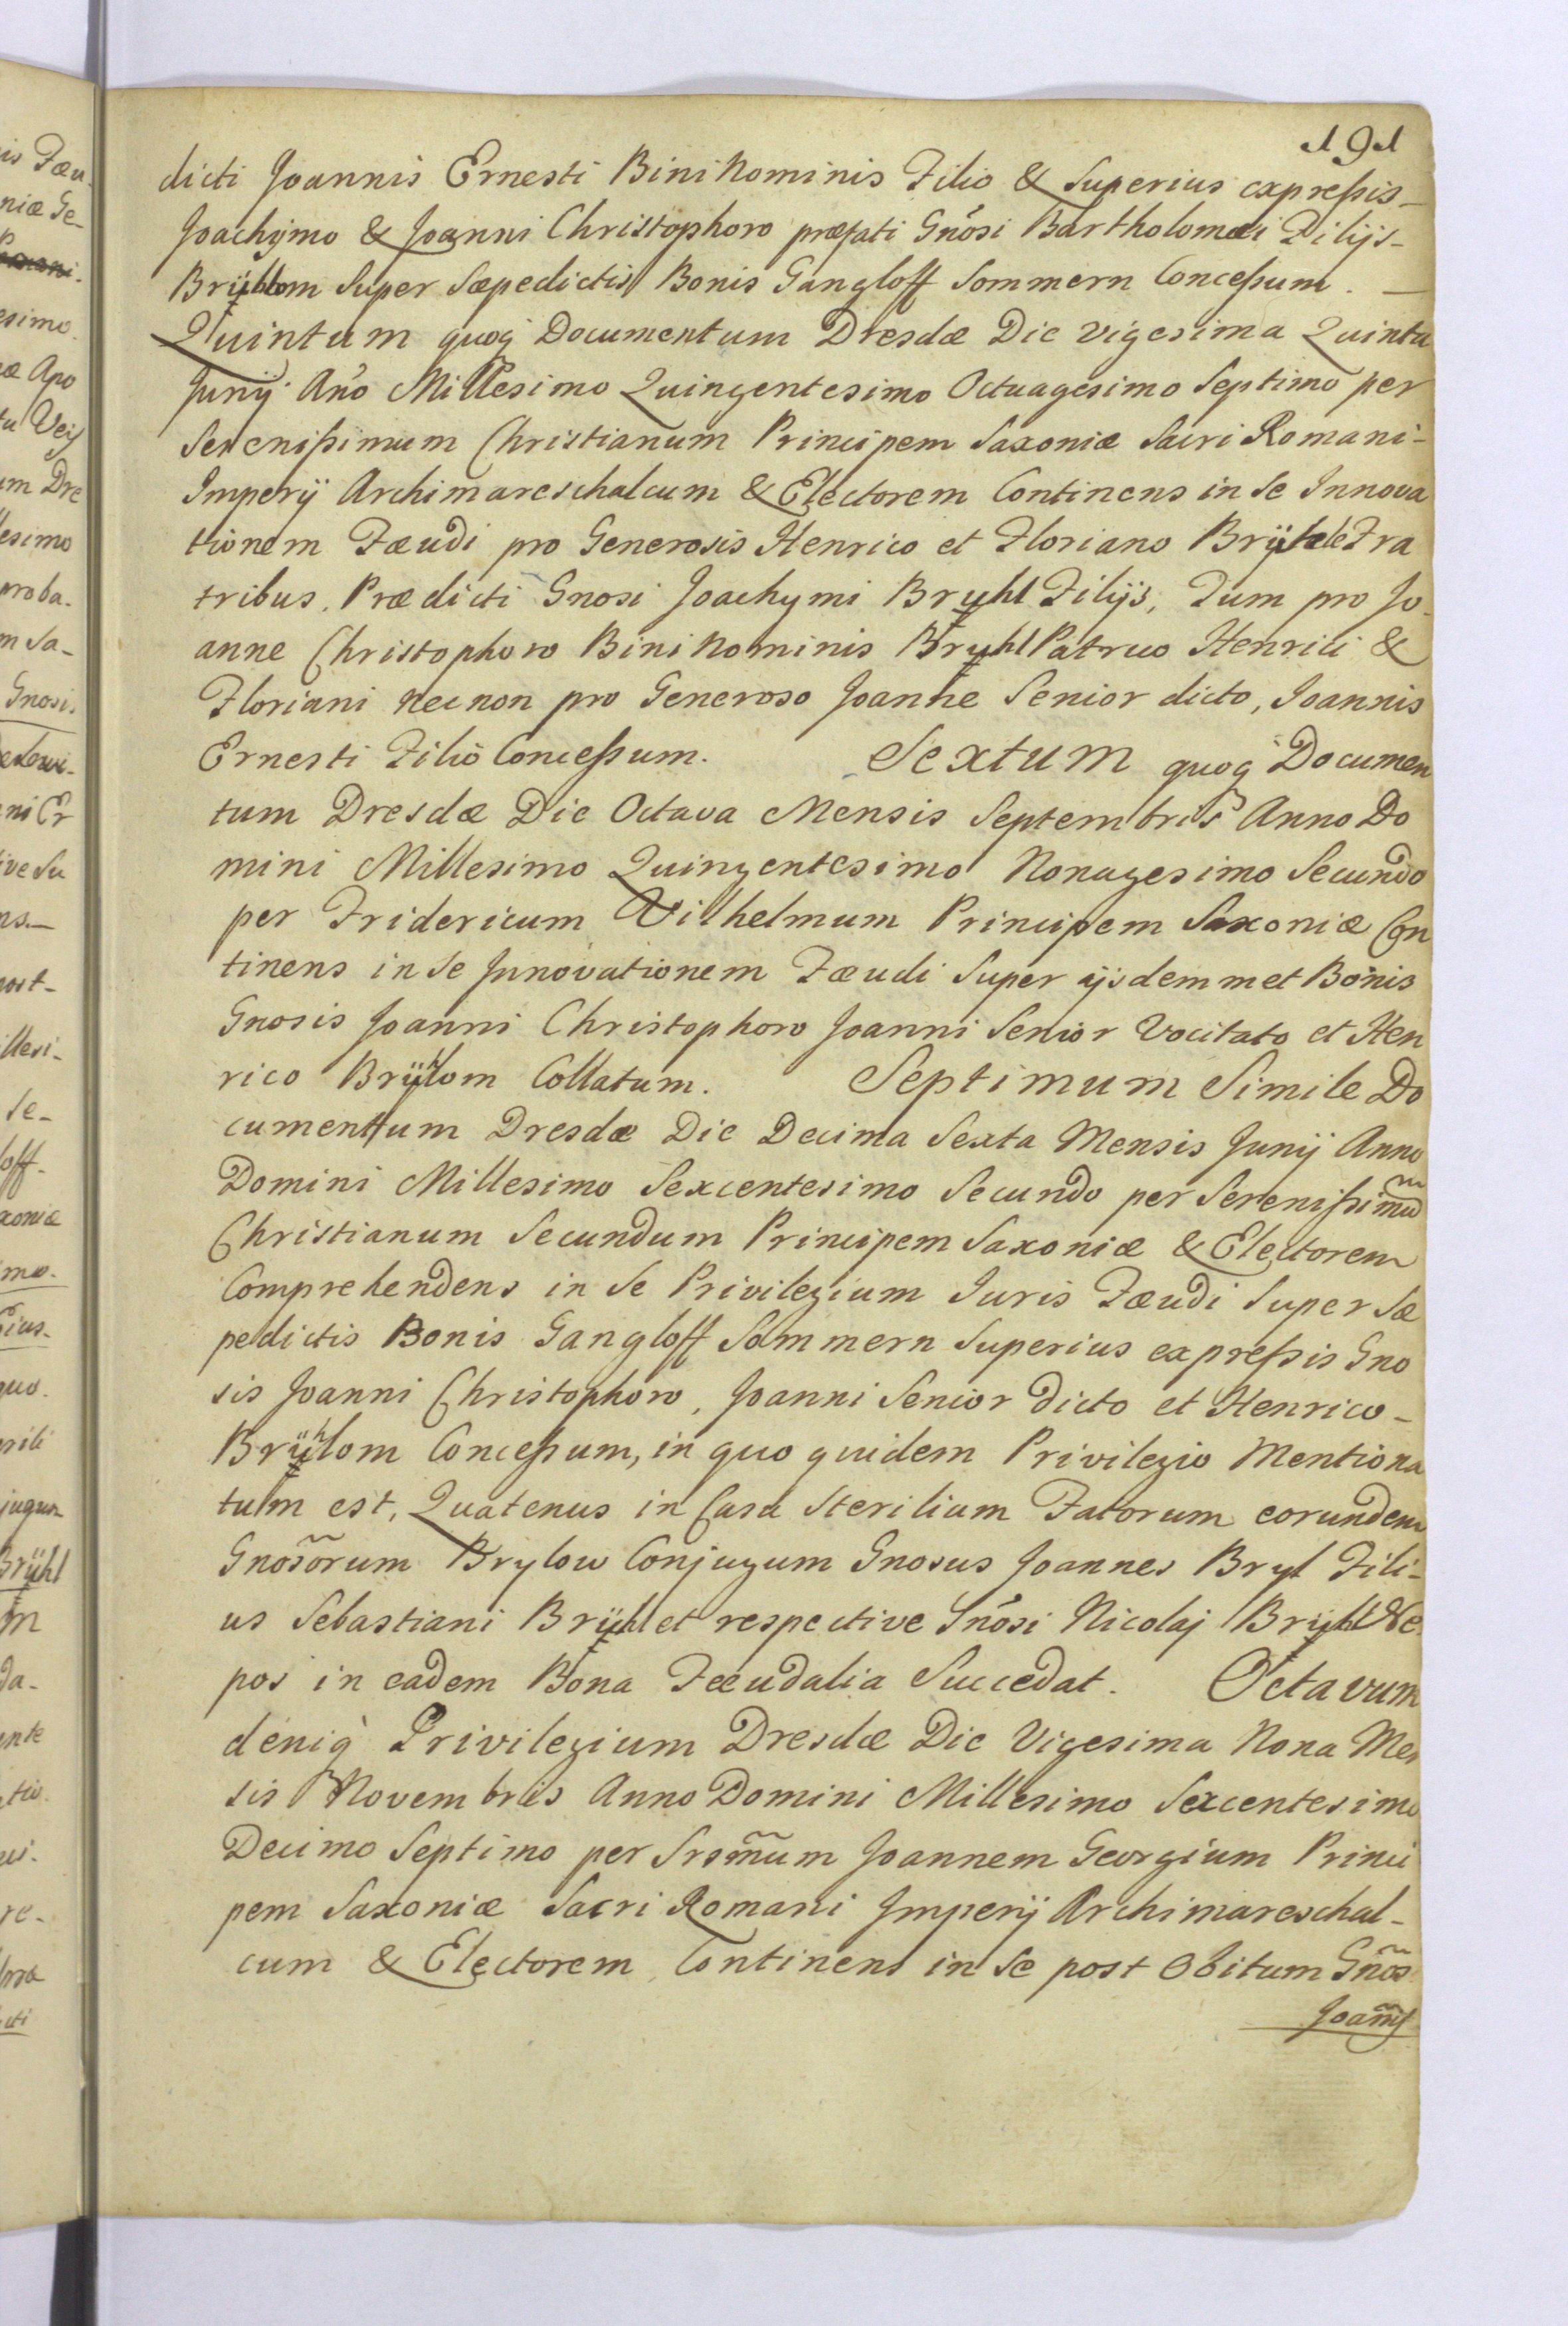 191
dicti Joannis Ernesti Bini Nominis Filio & Superius expreßis_
Joachymo & Joanni Christophoro præfati Gnõsi Bartholomæi Filijs_
Brÿhlom Super Sæpedictis Bonis Gangloff Sommern Conceßum. _
Quintum quoq̃ Documentum Dresdæ Die vigesima Quinta
Junij Año Millesimo Quingentesimo Octuagesimo Septimo per
Serenißimum Christianum Principem Saxoniæ Sacri Romani_
Imperij Archimareschalcum & Electorem Continens in Se Innova
tionem Fæudi pro Generosis Henrico et Floriano Brÿhle Fra
tribus. Prædicti Gnosi Joachymi Bruhl Filijs, Tum pro Jo_
anne Christophoro Bini Nominis Bryhl Patruo Henrici &
Floriani necnon pro Generoso Joanne Senior dicto, Joannis
Ernesti Filio Conceßum. Sextum quoq̃ Documen
tum Dresdæ Die Octava Mensis Septembris Anno Do
mini Millesimo Quingentesimo Nonagesimo Secundo
per Fridericum Vilhelmum Principem Saxoniæ Con
tinens in Se Innovationem Fæudi Super ijsdemmet Bonis
Gnosis Joanni Christophoro Joanni Senior Vocitato et Hen
rico Brÿhlom Collatum. Septimum Simile Do
cumentum Dresdæ Die Decima Sexta Mensis Junij Anno
Domini Millesimo Sexcentesimo Secundo per Serenißimũ
Christianum Secundum Principem Saxoniæ & Electorem
Comprehendens in Se Privilegium Juris Fæudi Super Sæ
pedictis Bonis Gangloff Sommern Superius expreßis Gno
sis Joanni Christophoro, Joanni Senior Dicto et Henrico_
Brÿhlom Conceßum, in quo quidem Privilegio Mentiona
tum est, Quatenus in Casu Sterilium Fatorum eorundem
Gnos̃orum Brylow Conjugum Gnosus Joannes Bryl Fili_
us Sebastiani Brÿhl et respective Gnõsi Nicolaj Brÿhl Ne
pos in eadem Bona Fæudalia Succedat. Octavum
deniq̀ Privilegium Dresdæ Die Vigesima Nona Men
sis Novembris Anno Domini Millesimo Sexcentesimo
Decimo Septimo per Srem̃um Joannem Georgium Princi
pem Saxoniæ Sacri Romani Imperij Archimareschal_
cum & Electorem Continens in Se post Obitum Gnõs
Joañis